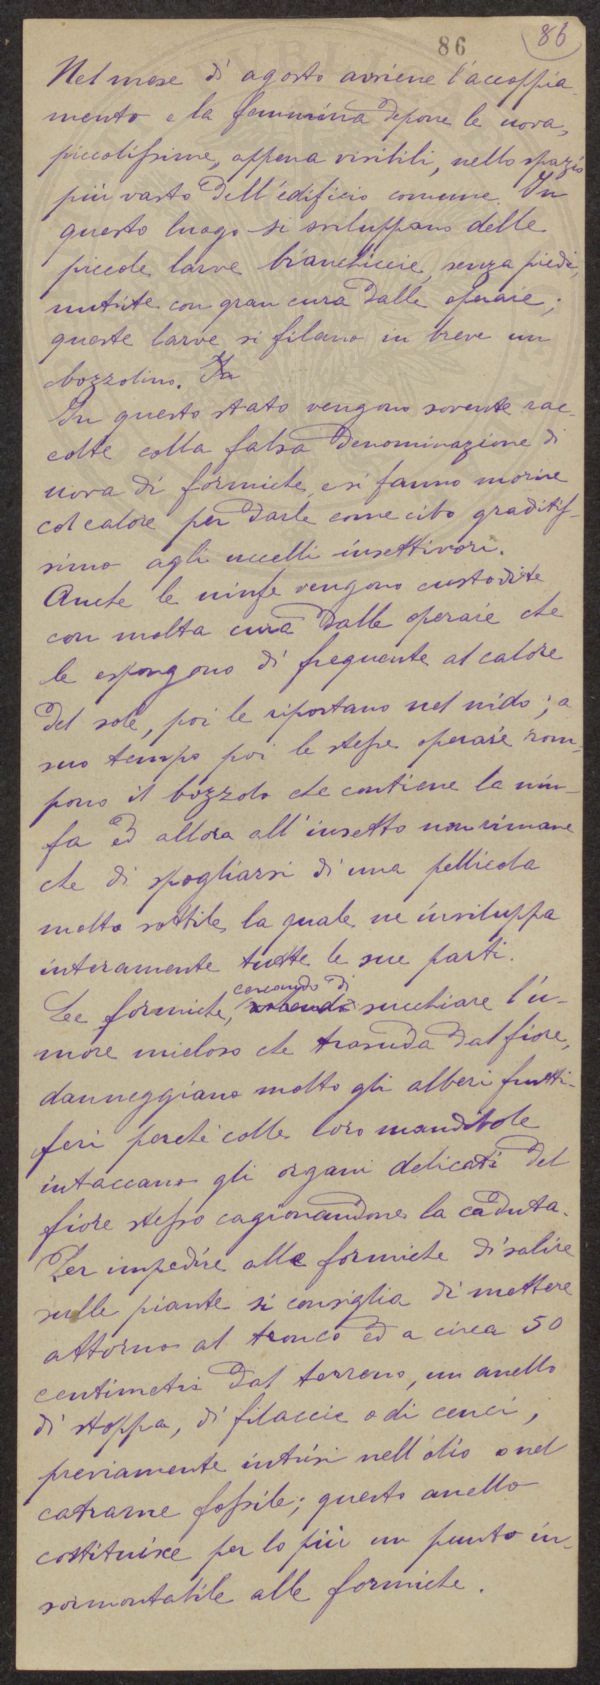 86
86
Nel mese di agosto avviene l'accoppia-
mento e la femmina depone le uova,
piccolissime, appena visibili, nello spazio
più vasto dell'edificio comune. In
questo luogo si sviluppano delle
piccole larve bianchiccie, senza piedi,
nutrite con gran cura dalle operaie;
queste larve si filano in breve un
bozzolino. In
In questo stato vengono sovente rac-
colte colla falsa denominazione di
uova di formiche, e si fanno morire
col calore per darle come cibo graditis-
simo agli uccelli insettivori.
Anche le ninfe vengono custodite
con molta cura dalle operaie che
le espongono di frequente al calore
del sole, poi le riportano nel nido; a
suo tempo poi le stesse operaie rom-
pono il bozzolo che contiene la nin-
fa ed allora all'insetto non rimane
che di spogliarsi di una pellicola
molto sottile, la quale ne inviluppa
interamente tutte le sue parti.
cercando di
Le formiche, volendo succhiare l'u-
more mieloso che trasuda dal fiore,
danneggiano molto gli alberi frutti-
feri perchè colle loro mandibole
intaccano gli organi delicati del
fiore stesso cagionandone la caduta.
Per impedire alle formiche di salire
sulle piante si consiglia di mettere
attorno al tronco ed a circa 50
centimetri dal terreno, un anello
di stoppa, di filaccie o di cenci,
previamente intrisi nell'olio o nel
catrame fossile; questo anello
costituisce per lo più un punto in-
sormontabile alle formiche.